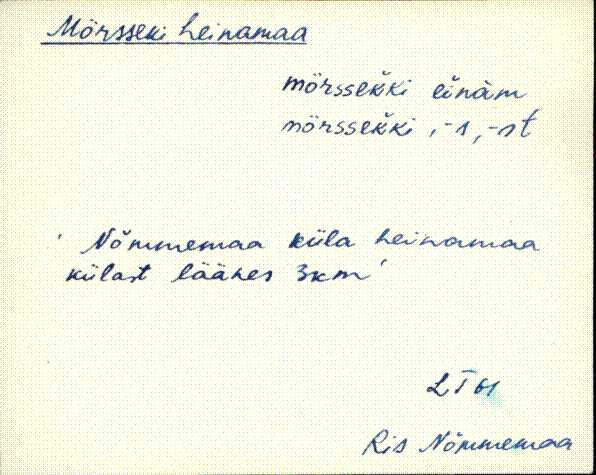 Mörsseki heinamaa
mörssek̆ki ein̆äm
mörssek̆ki, -s, -st
' Nõmmemaa küla heinamaa
külast läähes 3 km '
LT 61
Ris Nõmmemaa